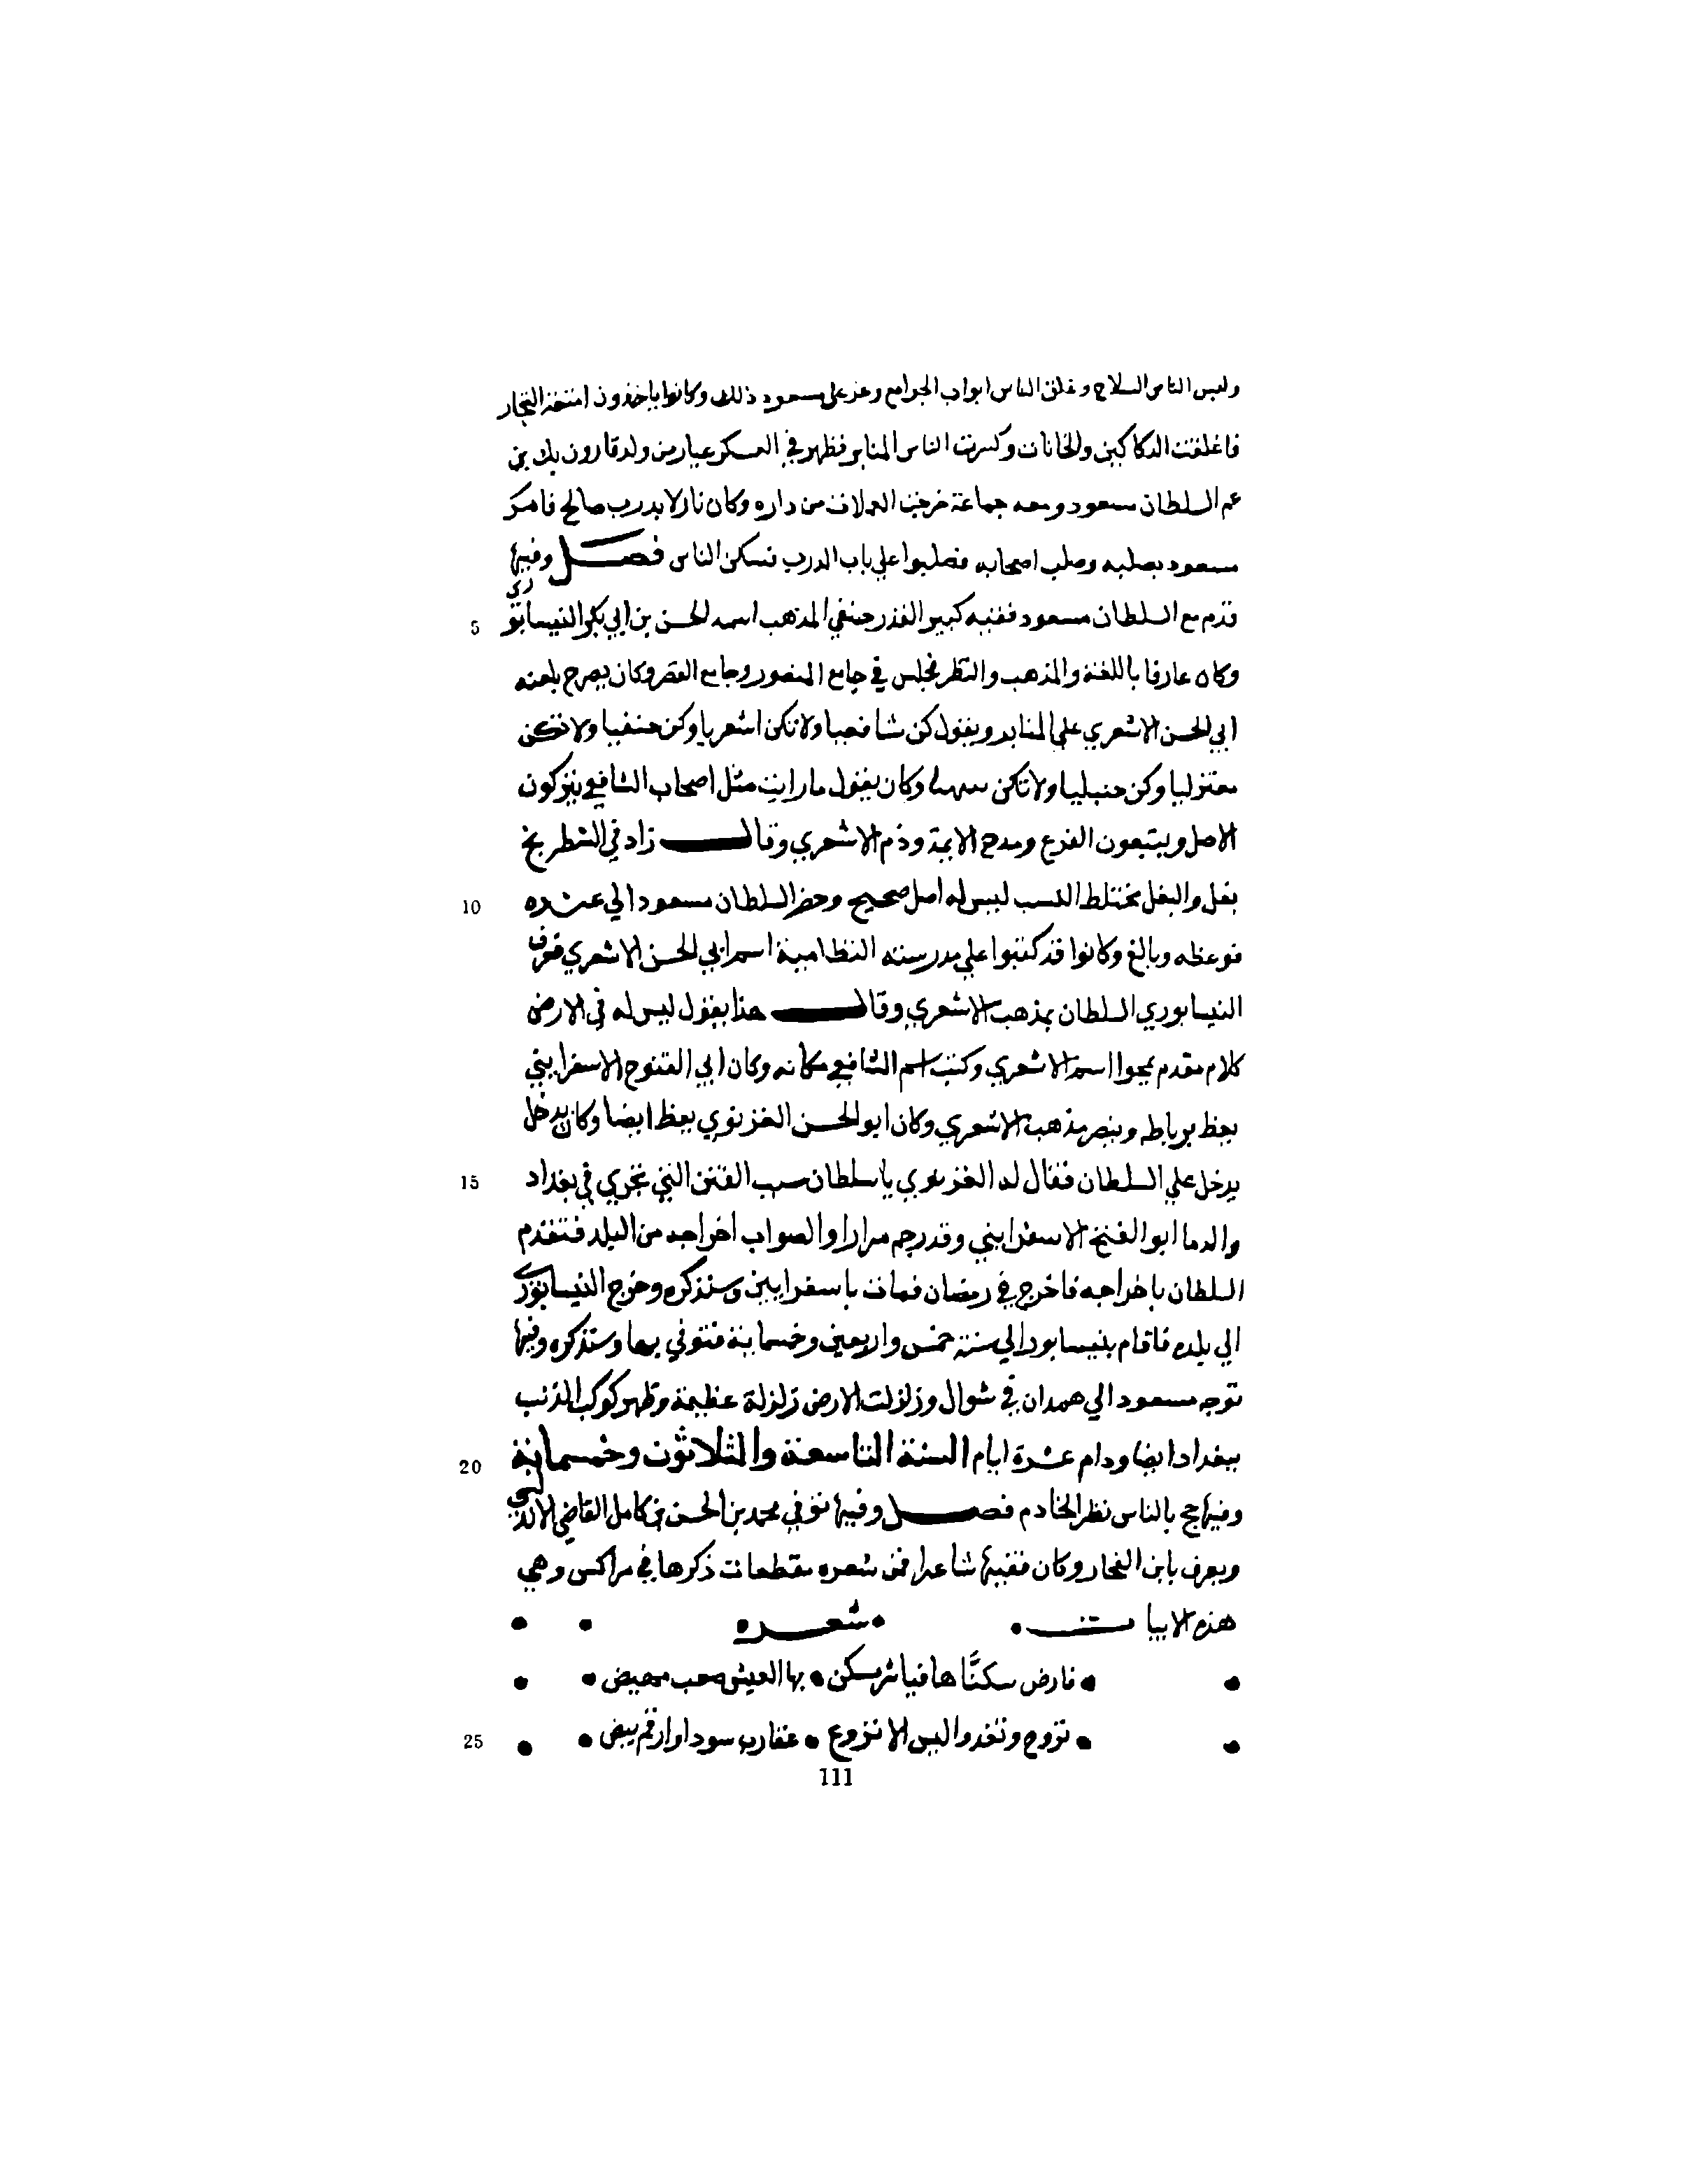 ولبس الناس السلاح وغلق الناس ابواب الجوامع وعز علي مسعود ذلك وكانوا ياخذون امتعة التجار
فاغلقت الدكاكين والخانات وكسرت الناس المنابر فظهر في العسكر عيار من ولد قارون بك بن
عم السلطان مسعود ومعه جماعة خرجت العملات من داره وكان نازلا بدرب صالح فامر
مسعود بصلبه وصلب اصحابه فصلبوا علي باب الدرب فسكن الناس فصل وفيها
قدم مع السلطان مسعود فقيه كبير القدر حنفي المذهب اسمه الحسن بن ابي بكر النيسابوري
5
وكان عارفا باللغة والمذهب والنظر فجلس في جامع المنصور وجامع القصر وكان يصرح بلعنه
ابي الحسن الاشعري علي المنابر ويقول كن شافعيا ولا تكن اشعريا وكن حنفيا ولا تكن
معتزليا وكن حنبليا ولا تكن وكان يقول ما رايت مثل اصحاب الشافعي يتركون
الاصل ويتبعون الفرع ومدح الايمة وذم الاشعري وقال زاد في الشطرنج
بغل والبغل مختلط النسب ليس له اصل صحيح وحضر السلطان مسعود الي عنده
10
فوعظه وبالغ وكانوا قد كتبوا علي مدرسته النظامية اسم ابي الحسن الاشعري فعرف
النيسابوري السلطان بمذهب الاشعري وقال هذا يقول ليس له في الارض
كلام فقدم بمحوا اسم الاشعري وكتب اسم الشافعي مكانه وكان ابي الفتوح الاسفرايني
يعظ برباطه وينصر مذهب الاشعري وكان ابو الحسن الغزنوي يعظ ايضا وكان يدخل
يدخل علي السلطان فقال له الغزنوي يا سلطان سبب الفتن التي تجري في بغداد
15
والدما ابو الفتح الاسفرايني وقد رجم مرارا والصواب اخراجه من البلد فتقدم
السلطان باخراجه فاخرج في رمضان فمات باسفرايين وسنذكره وخرج النيسابوري
الي بلده فاقام بنيسابور الي سنة خمس واربعين وخمسماية فتوفي بها وسنذكره وفيها
توجه مسعود الي همدان في شوال وزلزلت الارض زلزلة عظيمة وظهر كوكب الذنب
ببغداد ايضا ودام عشرة ايام السنة التاسعة والثلاثون وخمسماية
20
وفيها حج بالناس نظر الخادم فصل وفيها توفي محمد بن الحسن بن كامل القاضي الاندلسي
ويعرف بابن الفخار وكان فقيها شاعرا فمن شعره مقطعات ذكرها في مراكس وهي
هذه الابيات شعره
فارض سكنَّاها فيا شر مسكن بها العيش صعب مهيض
نروح ونغدوا ليس الا نروع عقارب سود اوارقم بيض
25
111